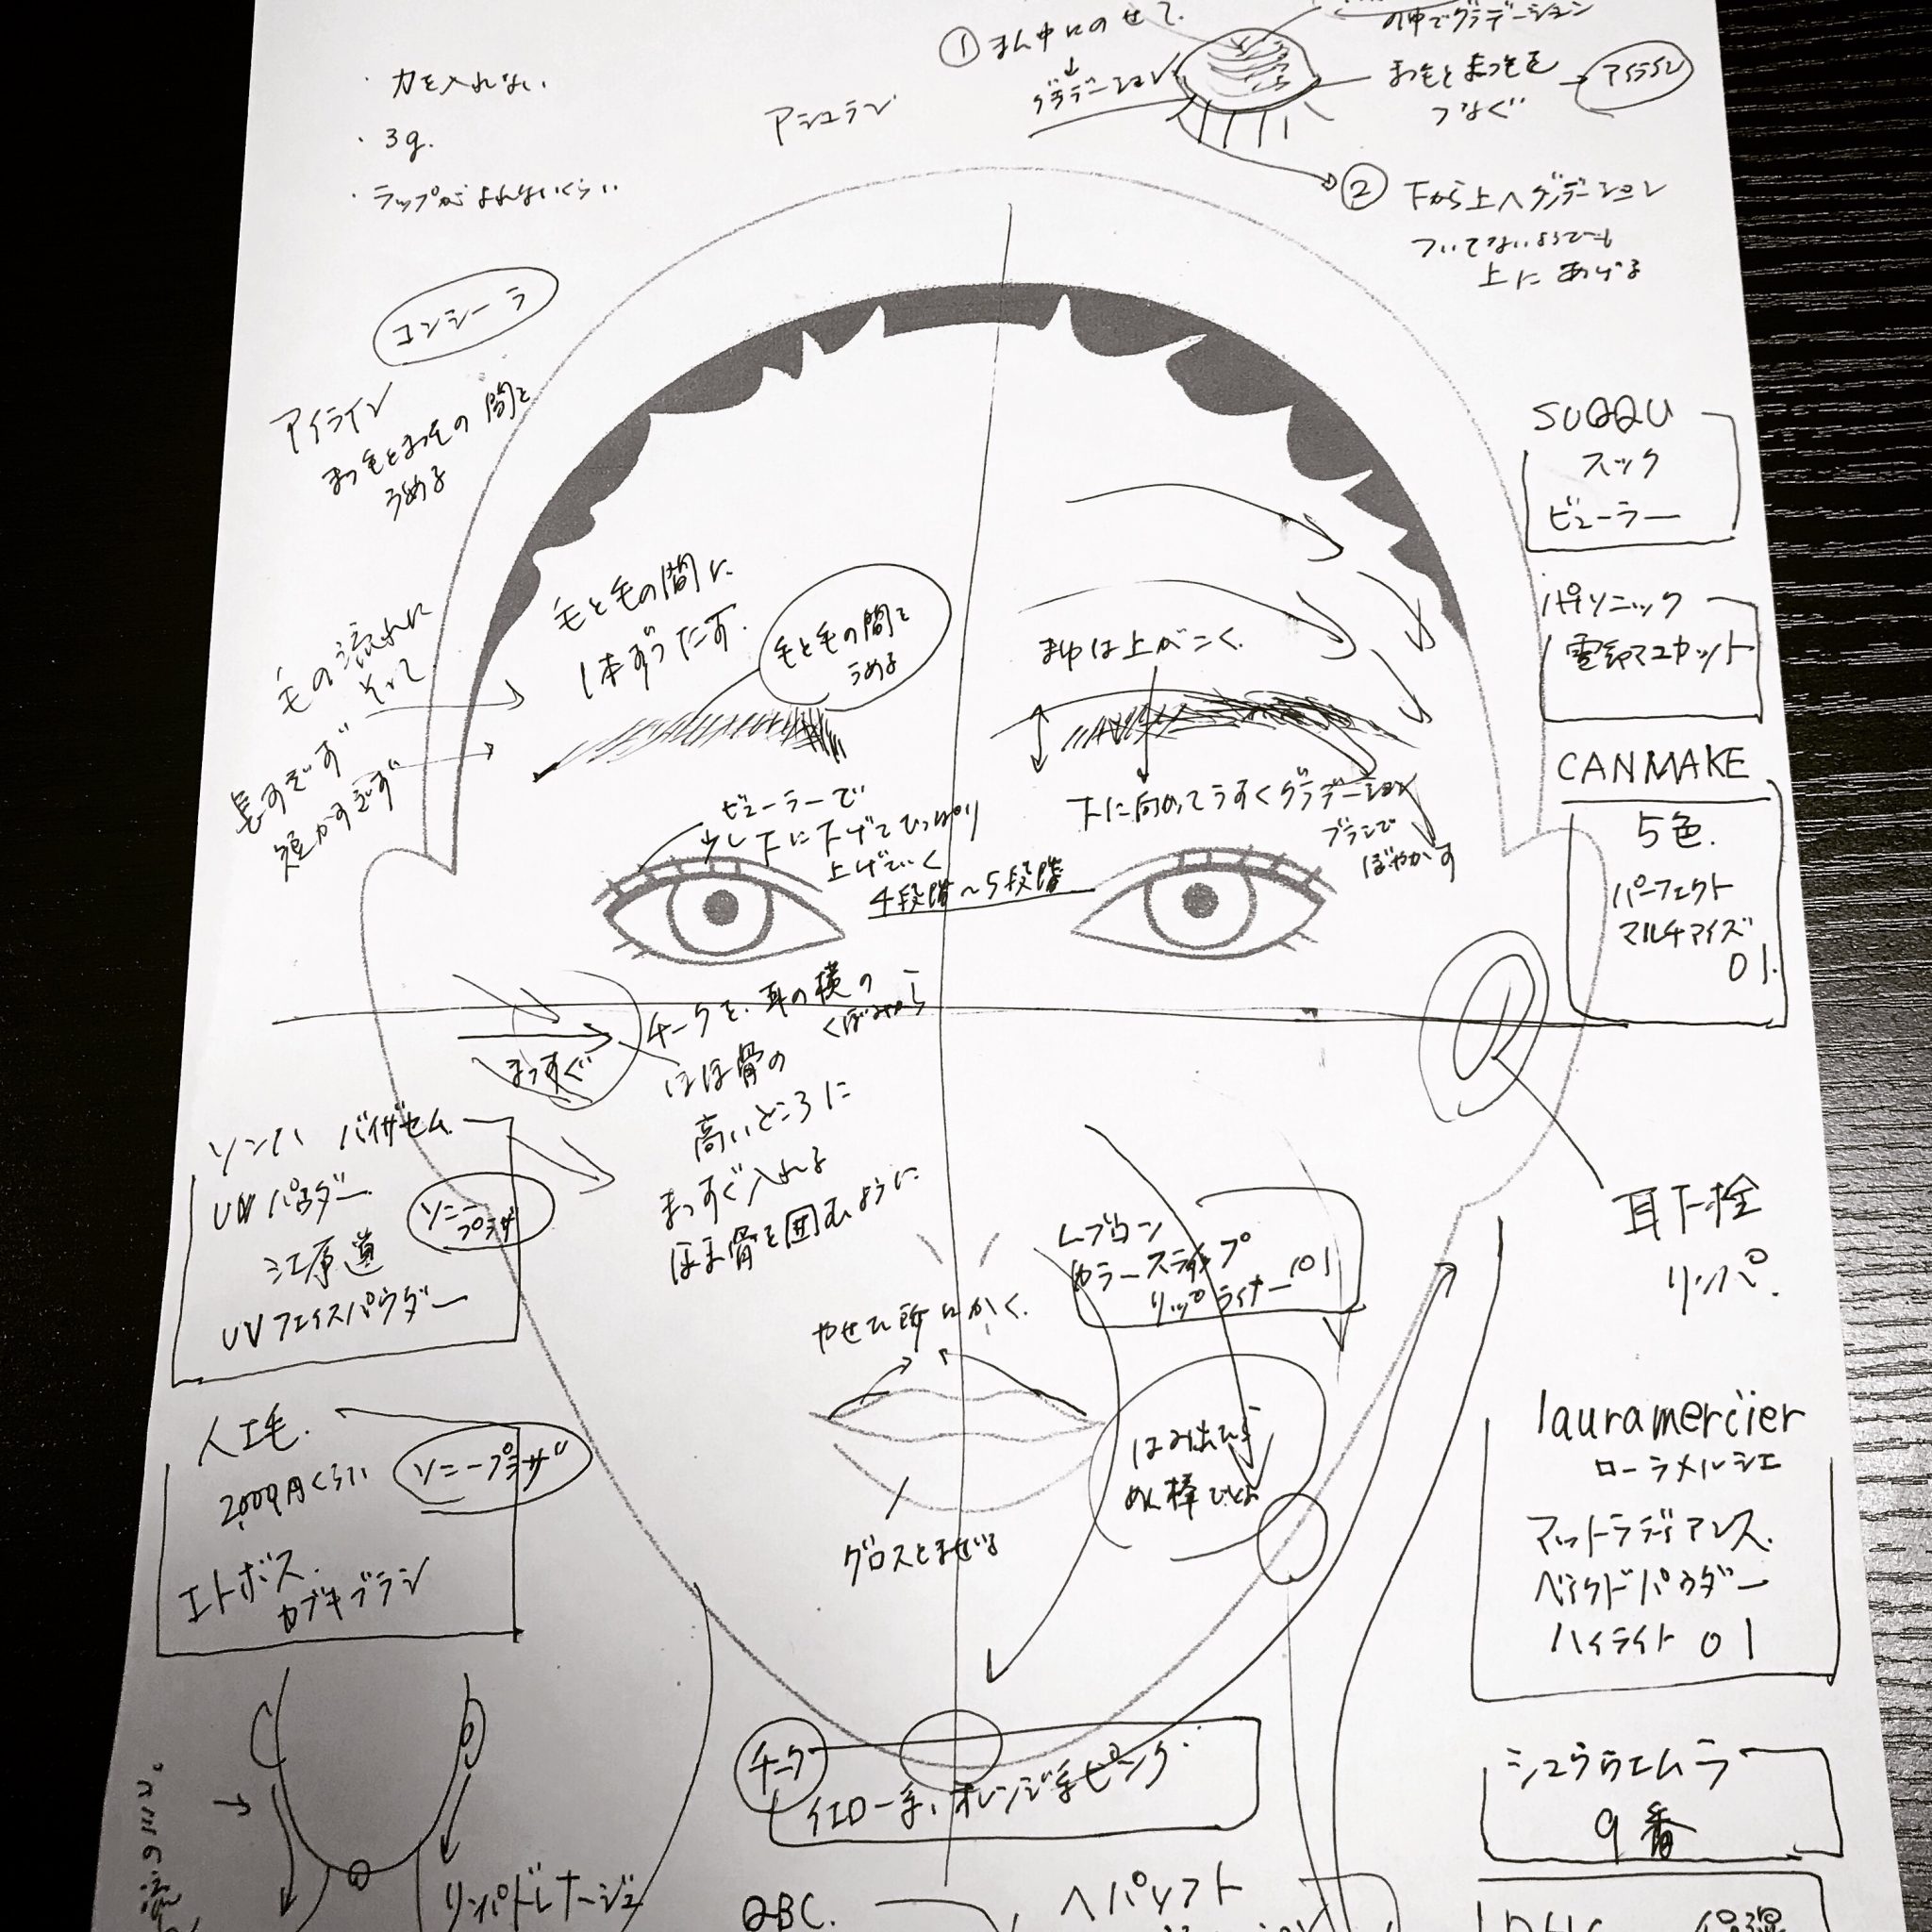 ① まん中にのせて
↓
グラデーション
の中でグラデーション
まつ毛とまつ毛を
つなぐ
アイライン
② 下から上へグラデーション
ついてないようでも
上にあげる
・力を入れない
・3g.
・ラップがよれないくらい
コンシーラ
アイライン
まつ毛とまつ毛の間を
うめる
毛の流れに
そって
長すぎず
短かすぎず
毛と毛の間に
1本ずつたす.
毛と毛の間を
うめる
まゆは上がこく.
下に向かってうすくグラデーション
ブラシで
ぼやかす
ビューラーで
少し下に下げてひっぱり
上げていく
4段階〜5段階
SUQQU
スック
ビューラー
パナソニック
マユカット
CANMAKE
5色.
パーフェクト
マルチアイズ
01.
まっすぐ
チークを、耳の横の
くぼみから
ほほ骨の
高いところに
まっすぐ入れる
ほほ骨を囲むように
UVパウダー
江原道
UVフェイスパウダー
ソニー
プラザ
人工毛.
2,000円くらい
ソニープラザ
エトボス.
カブキブラシ
レブロン
カラーステイ
リップライナー 01
やせた所にかく.
はみ出たら
めん棒で
グロスとまぜる
耳下栓
リンパ.
lauramercier
ローラメルシエ
マットラディアンス
ベイクドパウダー
ハイライト 01
シュウウエムラ
9番
チーク
イエロー系、オレンジ系ピンク
リンパドレナージュ
QBC.
ヘパソフト